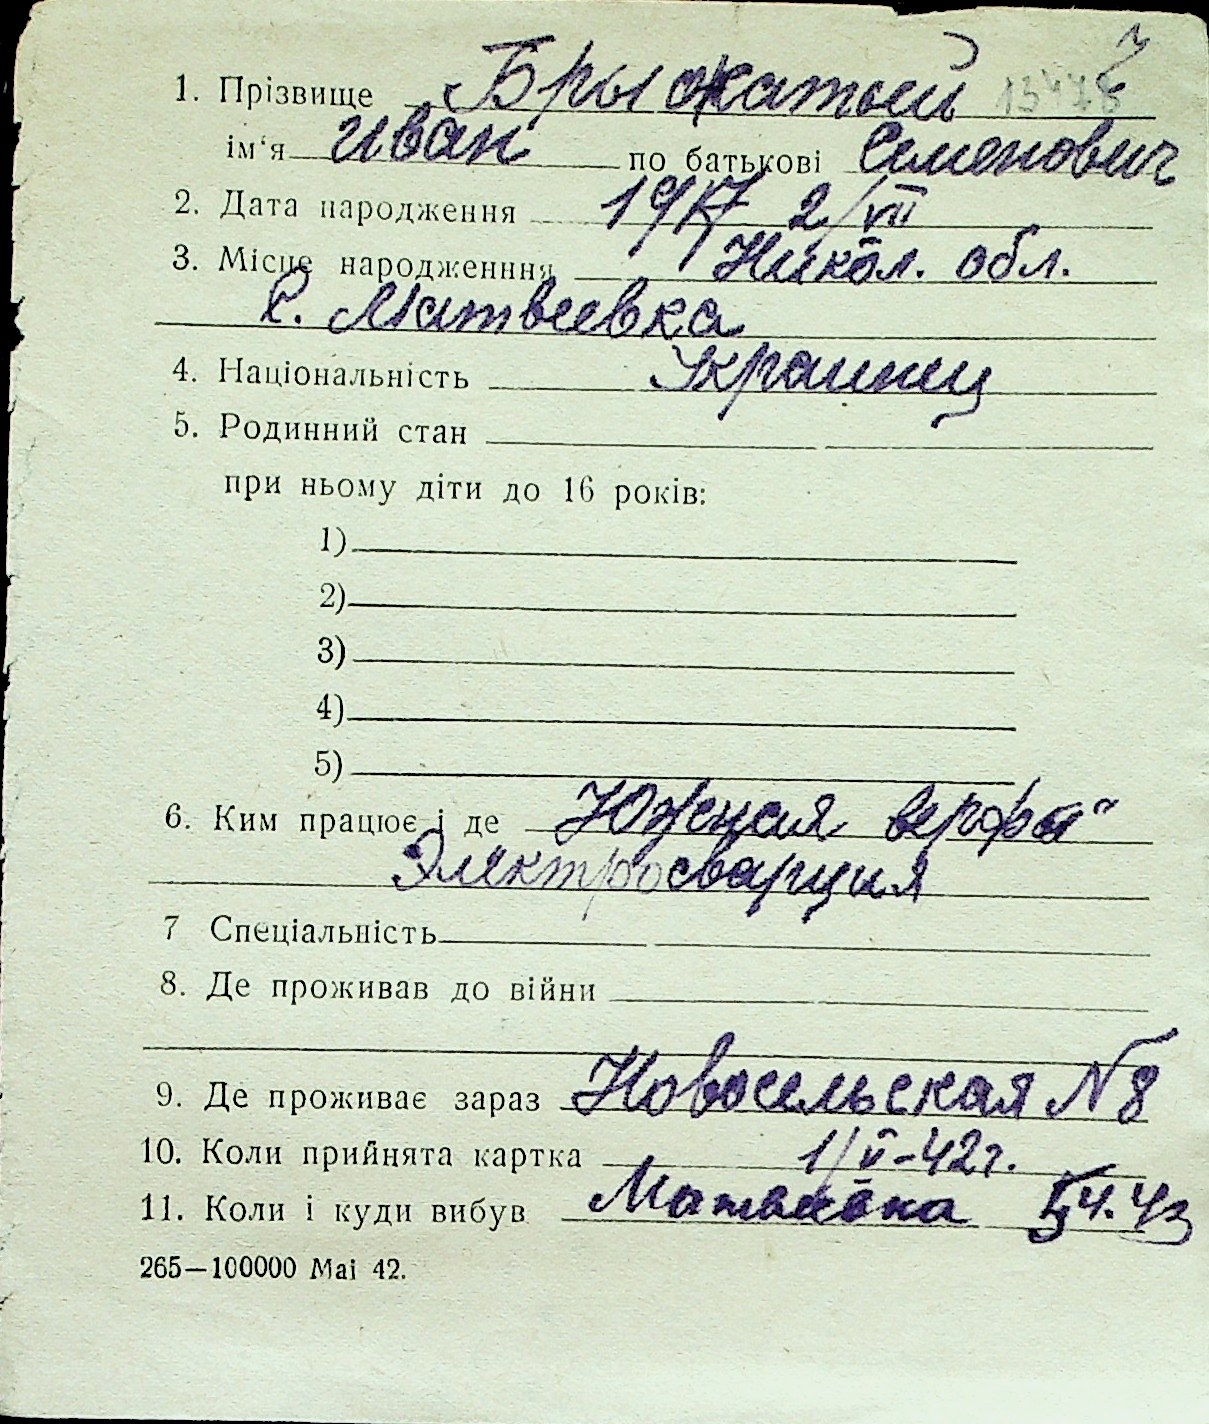 1. Прізвище Брыжатый 13478
ім‘я Иван по батькові Семенович
2. Дата народження 1917 2/VII
3. Місце народженння Никол. обл.
с. Матвеевка
4. Національність Украинец
5. Родинний стан
при ньому діти до 16 років:
1)
2)
3)
4)
5)
6. Ким працює і де Южная верфь"
Электросварщия
7 Спеціальність
8. Де проживав до війни
9. Де проживає зараз Новосельская N 8
10. Коли прийнята картка 1/V-42г.
11. Коли і куди вибув Матвеевка 4.43
265—100000 Маі 42.